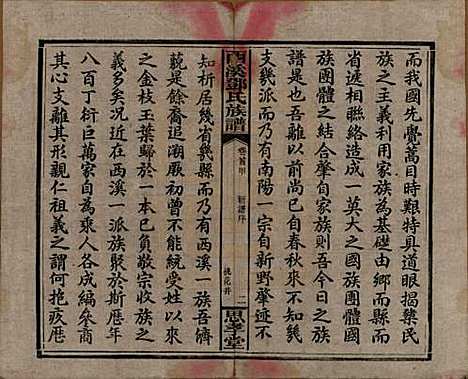 而我國先覺蒿目時艱特具隻眼揭櫫民
族主義利用家族為基礎由鄉而縣而
省遞相聯絡造成一莫大之國族以與他
族團體之結合肇自家族則吾今日之族
譜是也吾離以前尚已自春秋來不知
支幾派而乃有南陽一宗自新野肇迹不
西溪鄧氏族譜
卷首甲
新譜序
桃花井
二
思孝堂
知析居幾省幾縣而乃有西溪一族吾儕
藐是餘裔追溯厥初曾不能統受姓以來
之金枝玉葉歸於一本已負敬宗收族之
義多矣況近于西溪一派族於斯歷年
八百丁衍巨萬家自為乘人各成編參商
其心支離其形親仁祖義之謂何抱疚曆